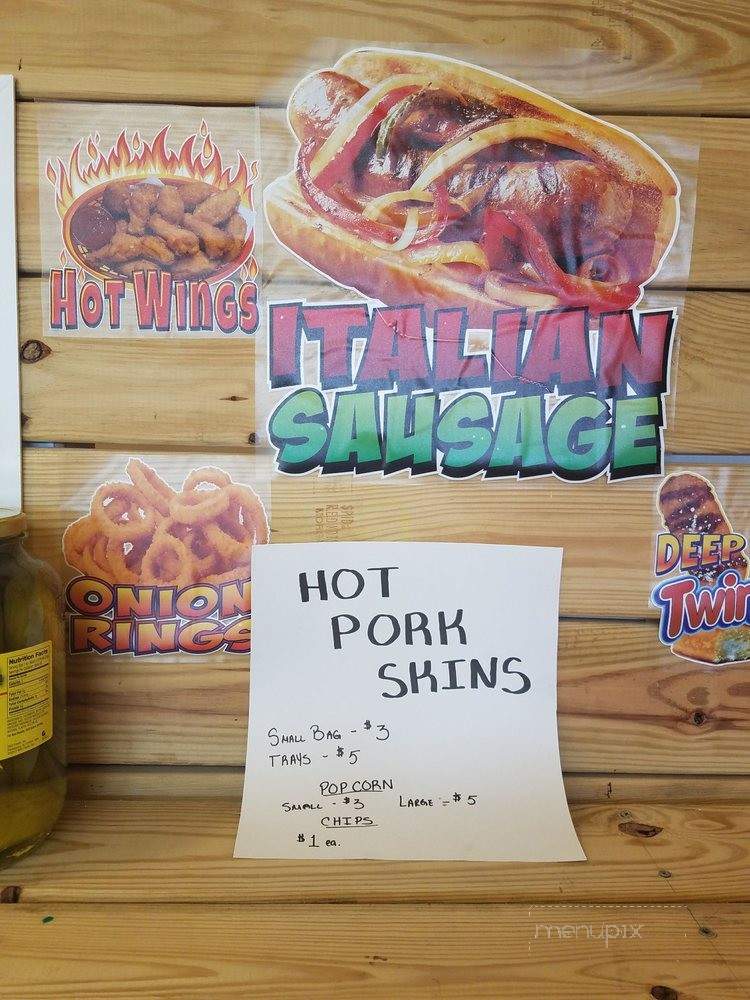 HOT WINGS
ITALIAN
SAUSAGE
ONION
RINGS
DEEP
HOT
PORK
SKINS
SMALL BAG - $3
TRAYS - $5
POPCORN
SMALL - $3 LARGE - $5
CHIPS
$1 ea.
Nutrition Facts
menupix